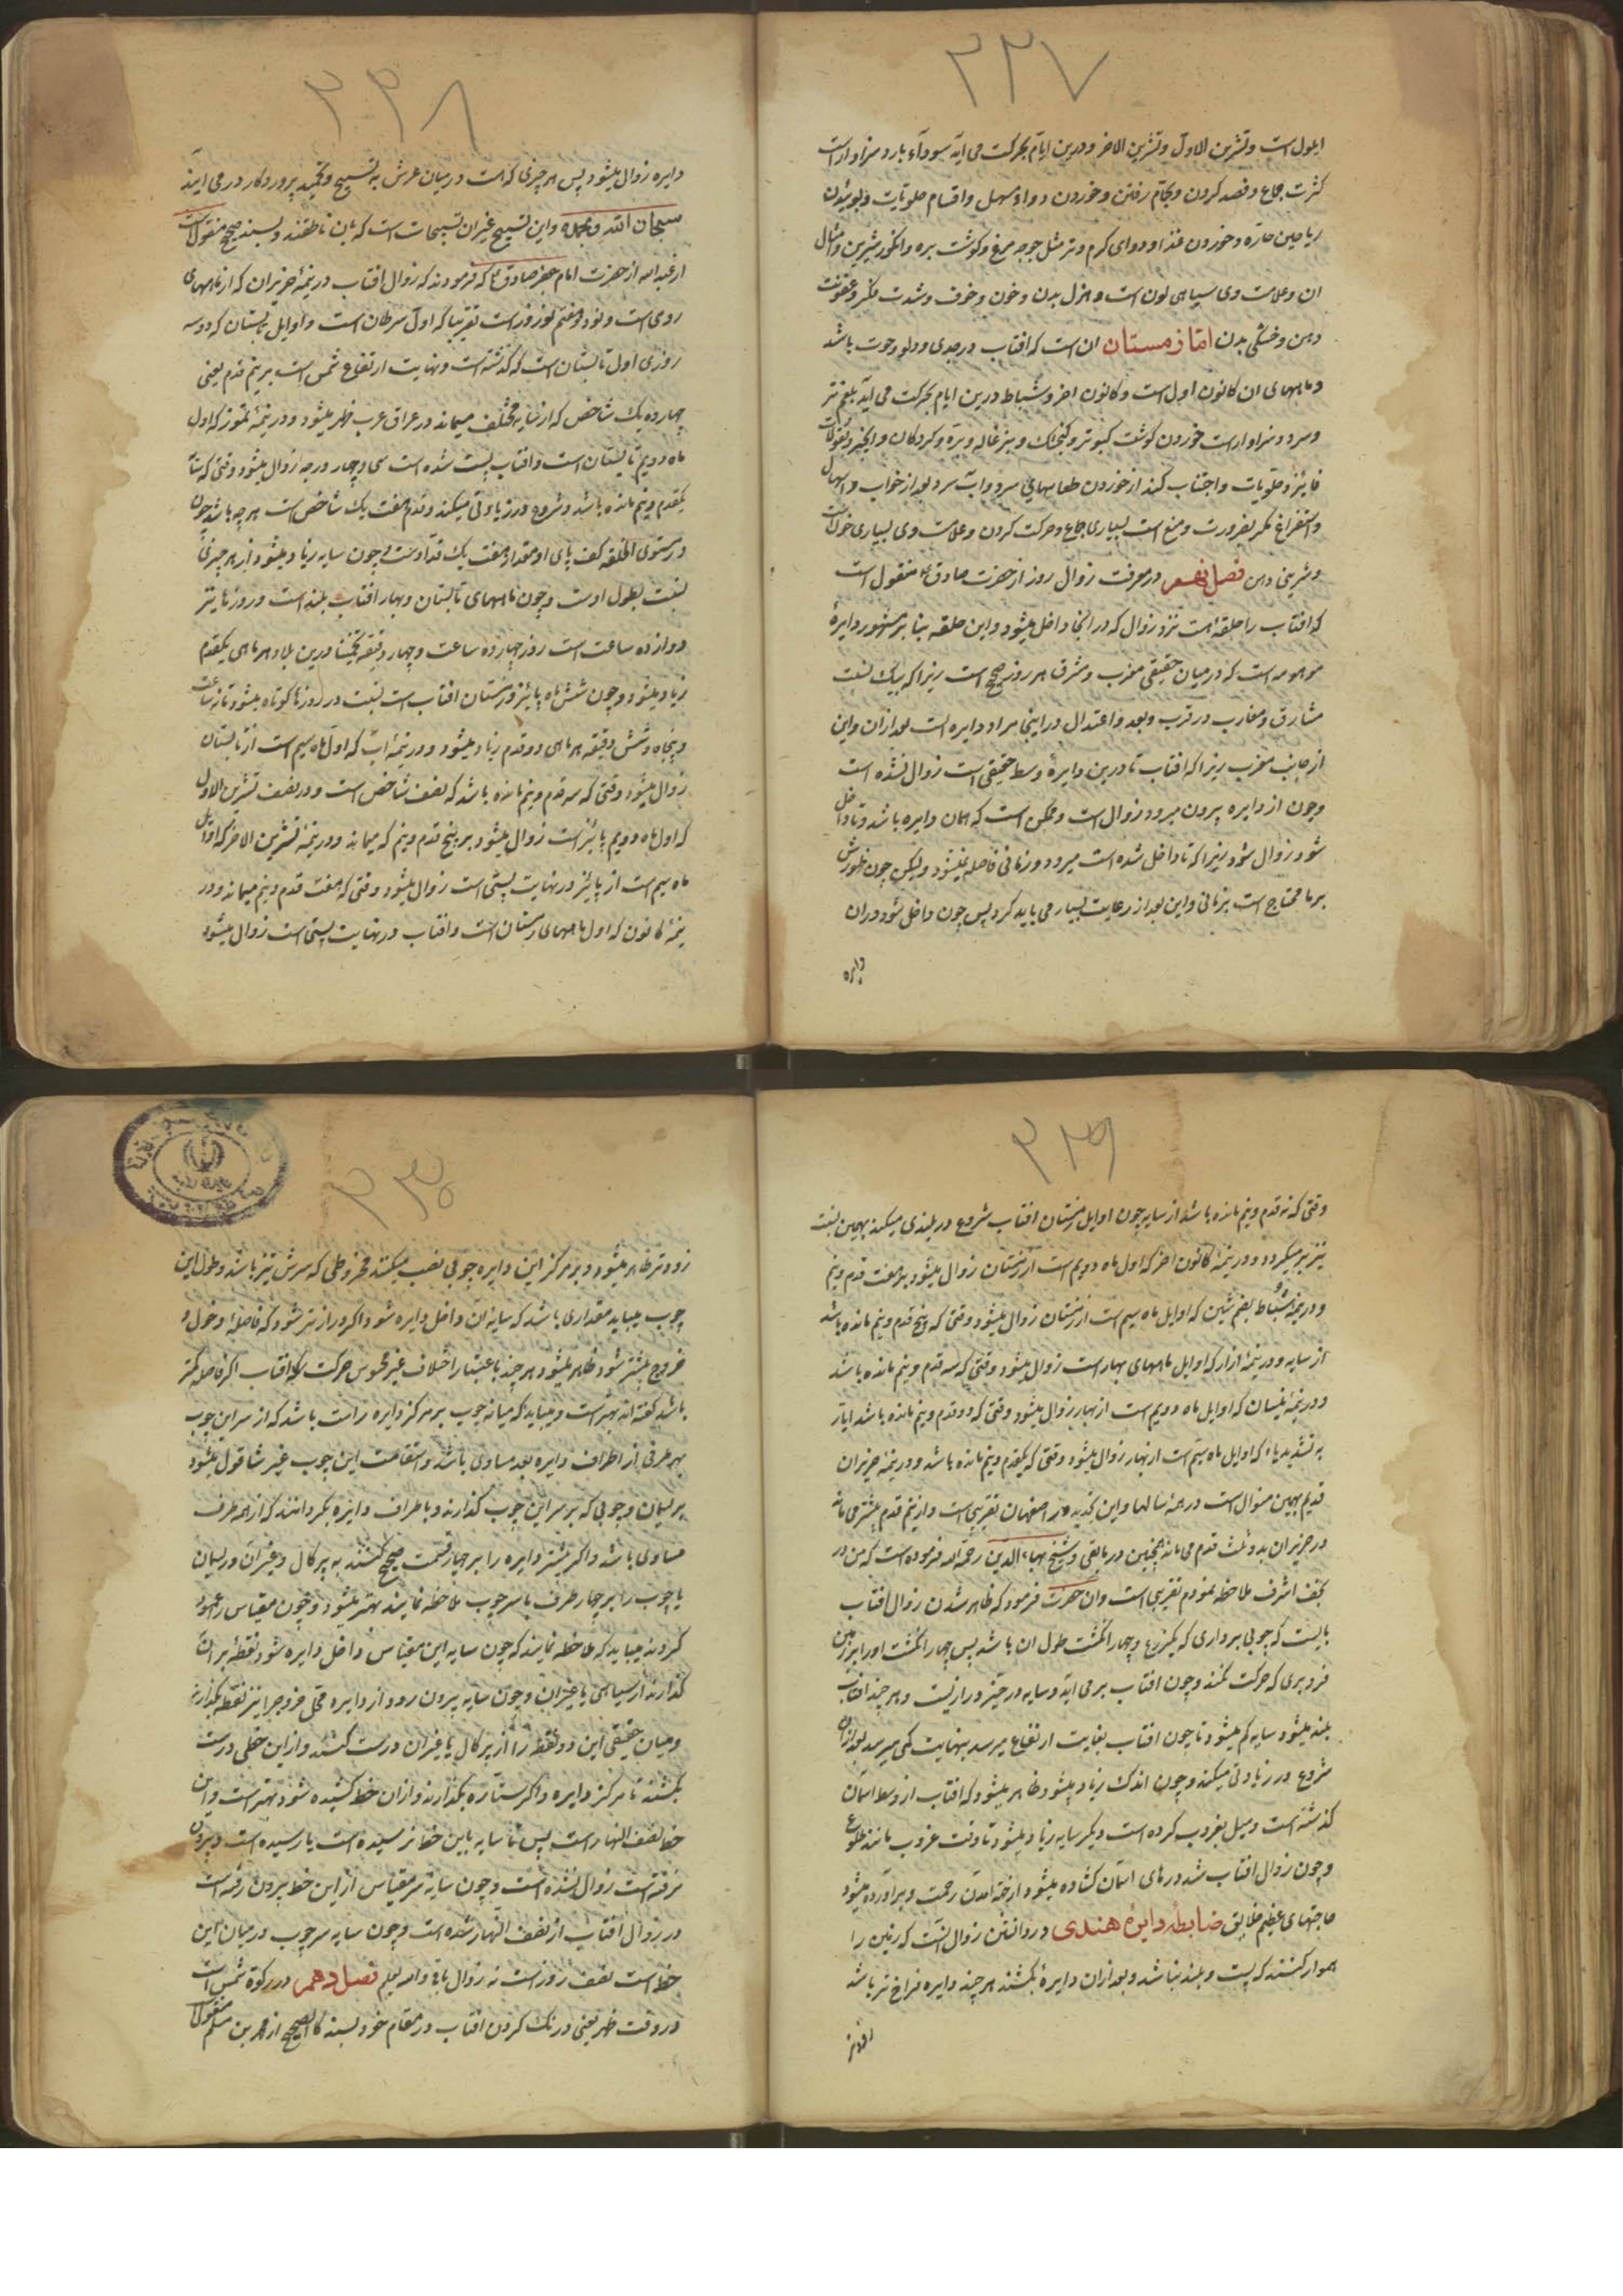 ۲۲۷
ایلول است و تشرین الاول و تشرین الاخر و درین ایام بحرکت می آید سوداء بارد و سزاوار است
کثرت جماع و فصد کردن و بحمام رفتن و خوردن دواء مسهل و اقسام حلویات و بوییدن
ریاحین حاره و خوردن غذا و دوای گرم و تر مثل جوجه مرغ و گوشت بره و انگور شیرین و امثال
ان و علامت وی سیاهی لون است و هزل بدن و خون و خوف و شدت فکر و عفونت
دهن و خشکی بدن اما زمستان ان است که افتاب در جدی و دلو و حوت باشد
و ماههای ان کانون اول است و کانون اخر و شباط درین ایام بحرکت می آید بلغم تر
و سرد و سزاوار است خوردن گوشت کبوتر و گنجشک و بزغاله و بره و گردکان و انجیر
و حلویات و اجتناب کند از خوردن طعامهای سرد و اب سرد بعد از خواب و اسهال
و استفراغ مگر بضرورت و منع است بسیاری جماع و حرکت کردن و علامت وی بسیاری خواب است
و شیرینی دهن فصل نهم در معرفت زوال روز از حضرت صادق ع منقول است
که افتاب را حلقه است نزد زوال که در انجا داخل میشود و این حلقه بنابر مشهور دایره
موهومه است که در میان حقیقی مغرب و مشرق هر روز صحیح است زیرا که بیک نسبت
مشارق و مغارب در قرب و بعد و اعتدال در اینجا مراد دایره است بعد ازان و این
از جانب مغرب زیرا که افتاب تا درین دایره وسط حقیقی است زوال نشده است
و چون از دایره بیرون میرود زوال است و ممکن است که همان دایره باشد و تا داخل
شود زوال شود زیرا که تا داخل شده است میرود و زمانی فاصله نمیشود و لیکن چون ظهورش
بر ما محتاج است بزمانی و این بعد از رعایت بسیار می باید کرد پس چون داخل شود در ان
دایره
۲۲۸
دایره زوال میشود پس هر چیزی که است در میان عرش به تسبیح و تحمید پروردکار در می آیند
سبحان الله و بحمده و این تسبیح غیر ان تسبیحات است که بان ناطقند و بسند صحیح منقول است
از عبدالله از حضرت امام جعفر صادق ع که فرمودند که زوال افتاب در نیمه حزیران که از ماههای
رومی است و نود و هفتم نوروز است تقریبا که اول سرطان است و اوایل تابستان که دو سه
روزی اول تابستان است که گذشته است و نهایت ارتفاع شمس است بر نیم قدم یعنی
چهارده یک شاخص که از سایه مختلف میماند در عراق عرب ظهر میشود و در نیمه تموز که اول
ماه دویم تابستان است و افتاب پست شده است سی و چهار درجه زوال میشود وقتی که سایه
یکقدم و نیم مانده باشد و شروع در زیادتی میکند و قدم هفت یک شاخص است هر چه باشد چون
در مستوی الخلقه کف پای او مقدار هفت یک قد اوست و چون سایه زیاد میشود از هر چیزی
نسبت بطول اوست و چون ماههای تابستان و بهار افتاب بلند است و روزها بیشتر
دوازده ساعت است روز چهارده ساعت و چهار دقیقه تخمینا درین بلاد هر ماهی یکقدم
زیاد میشود و چون شش ماه پائیز و زمستان افتاب است نسبت در روزها کوتاه میشود تا نه ساعت
و پنجاه و شش دقیقه هر ماهی دو قدم زیاد میشود و در نیمه اب که اول ماه سیم است از تابستان
زوال میشود وقتی که سه قدم و نیم مانده باشد که نصف شاخص است و در نصف تشرین الاول
که اول ماه دویم پائیز است زوال میشود بر پنج قدم و نیم که میماند و در نیمه تشرین الاخر که اوایل
ماه سیم است از پائیز در نهایت پستی است زوال میشود وقتی که هفت قدم و نیم میماند و در
نیمه کانون که اول ماههای زمستان است و افتاب در نهایت پستی است زوال میشود
۲۲۹
وقتی که نه قدم و نیم مانده باشد از سایه چون اوایل زمستان افتاب شروع در بلندی میکند بهمین نسبت
نیز بر میگردد و در نیمه کانون اخر که اول ماه دویم است از زمستان زوال میشود بر هفت قدم و نیم
و در نیمه شباط بضم شین که اوایل ماه سیم است از زمستان زوال میشود وقتی که پنج قدم و نیم مانده باشد
از سایه و در نیمه اذار که اوایل ماههای بهار است زوال میشود وقتی که سه قدم و نیم مانده باشد
و در نیمه نیسان که اوایل ماه دویم است از بهار زوال میشود وقتی که دو قدم و نیم مانده باشد ایار
به تشدید یاء که اوایل ماه سیم است از بهار زوال میشود وقتی که یکقدم و نیم مانده باشد و در نیمه حزیران
قدیم بهمین منوال است در همه سالها و این در اصفهان تقریبی است و از نیم قدم بیشتر می ماند
در حزیران بدو ثلث قدم می ماند همچنین در باقی و شیخ بهاء الدین رحمه الله فرموده است که من در
نجف اشرف ملاحظه نمودم تقریبی است و ان حضرت فرمود که ظاهر شدن زوال افتاب
بایست که چوبی برداری که یکزرع و چهار انگشت طول ان باشد پس چهار انگشت او را بر زمین
فرو بری که حرکت نکند و چون افتاب بر می اید و سایه در حیز درازیست و هر چند افتاب
بلند میشود سایه کم میشود تا چون افتاب بغایت ارتفاع میرسد بنهایت کمی میرسد بعد ازان
شروع در زیادتی میکند و چون اندک زیاد میشود ظاهر میشود که افتاب از وسط اسمان
گذشته است و میل بغروب کرده است و دیگر سایه زیاد میشود تا وقت غروب مانند طلوع
و چون زوال افتاب شد درهای اسمان گشاده میشود از جهه امدن رحمت و براورده میشود
حاجتهای عظیم خلایق ضابطه دایره هندی در دانستن زوال انست که زمین را
هموار کنند که پست و بلند نباشد و بعد ازان دایره بکشند هر چند دایره فراخ تر باشد
۲۳۰
زودتر ظاهر میشود و بر مرکز این دایره چوبی نصب میکنند مخروطی که سرش تیز باشد و طول این
چوب میباید مقداری باشد که سایه ان داخل دایره شود و اگر درازتر شود که فاصله دخول و
خروج بیشتر شود ظاهر میشود هر چند باعتبار اختلاف غیر محسوس حرکت افتاب اگر فاصله کمتر
باشد گفته اند بهتر است و میباید که میانه چوب بر مرکز دایره راست باشد که از سر این چوب
بهر طرفی از اطراف دایره بعد مساوی باشد و استقامت این چوب غیر شاقول میشود
بریسمان و چوبی که بر سر این چوب گذارند و باطراف دایره بگردانند که از همه طرف
مساوی باشد و اگر بیشتر دایره را بر چهار قسمت صحیح کنند به پرگال و غیر ان و ریسمان
یا چوب را بر چهار طرف با سر چوب ملاحظه نمایند بهتر میشود و چون مقیاس را عمود
کردند میباید که ملاحظه نمایند که چون سایه این مقیاس داخل دایره شود نقطه بر ان
گذارند از سیاهی یا غیر ان و چون سایه بیرون رود از دایره محل خروج را نیز نقطه بگذارند
و میان حقیقی این دو نقطه را از پرگال یا غیر ان درست کنند و ازین خطی درست
بکشند تا مرکز دایره و اگر ستاره بگذارند و ازان خط کشیده شود بهتر است و این
خط نصف النهار است پس تا سایه باین خط نرسیده است یا رسیده است و بیرون
نرفته است زوال نشده است و چون سایه سر مقیاس ازین خط بیرون رفته است
در زوال افتاب از نصف النهار شده است و چون سایه سر چوب در میان این
خط است نصف روز است نه زوال باقی والله یعلم فصل دهم در رکود شمس است
در وقت ظهر یعنی درنگ کردن افتاب در مقام خود بسند کالصحیح از محمد بن مسلم منقول است